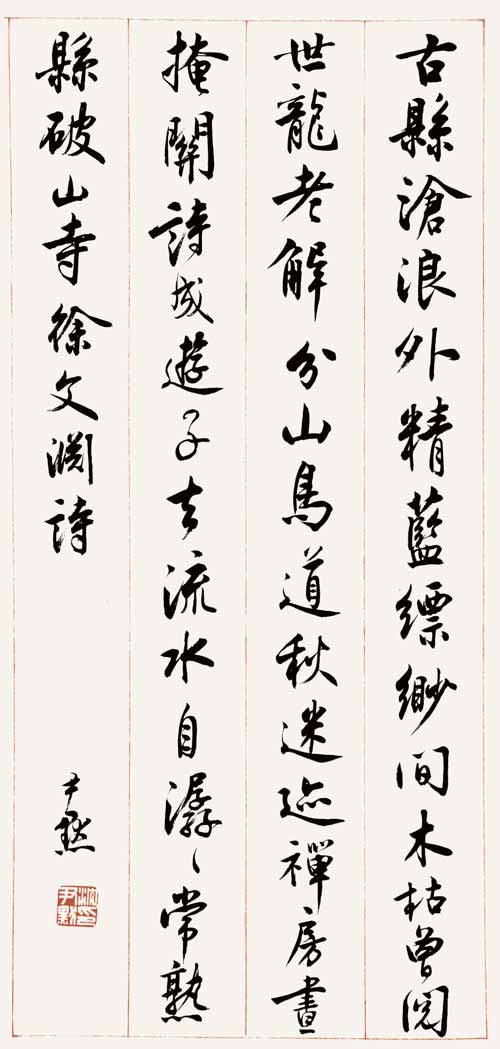 古縣滄浪外精藍縹緲間木枯曾閱
世龍老解分山鳥道秋迷迹禪房晝
掩關詩成遊子去流水自潺〻常熟
縣破山寺徐文淵詩
尹默
沈尹默印